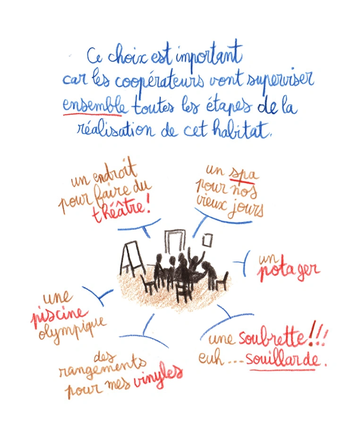 Ce choix est important
car les coopérateurs vont superviser
ensemble toutes les étapes de la
réalisation de cet habitat.
un endroit
pour faire du
théâtre!
un spa
pour nos
vieux jours
un
potager
une
piscine
olympique
une soubrette!!!
euh...souillarde.
des
rangements
pour mes vinyles